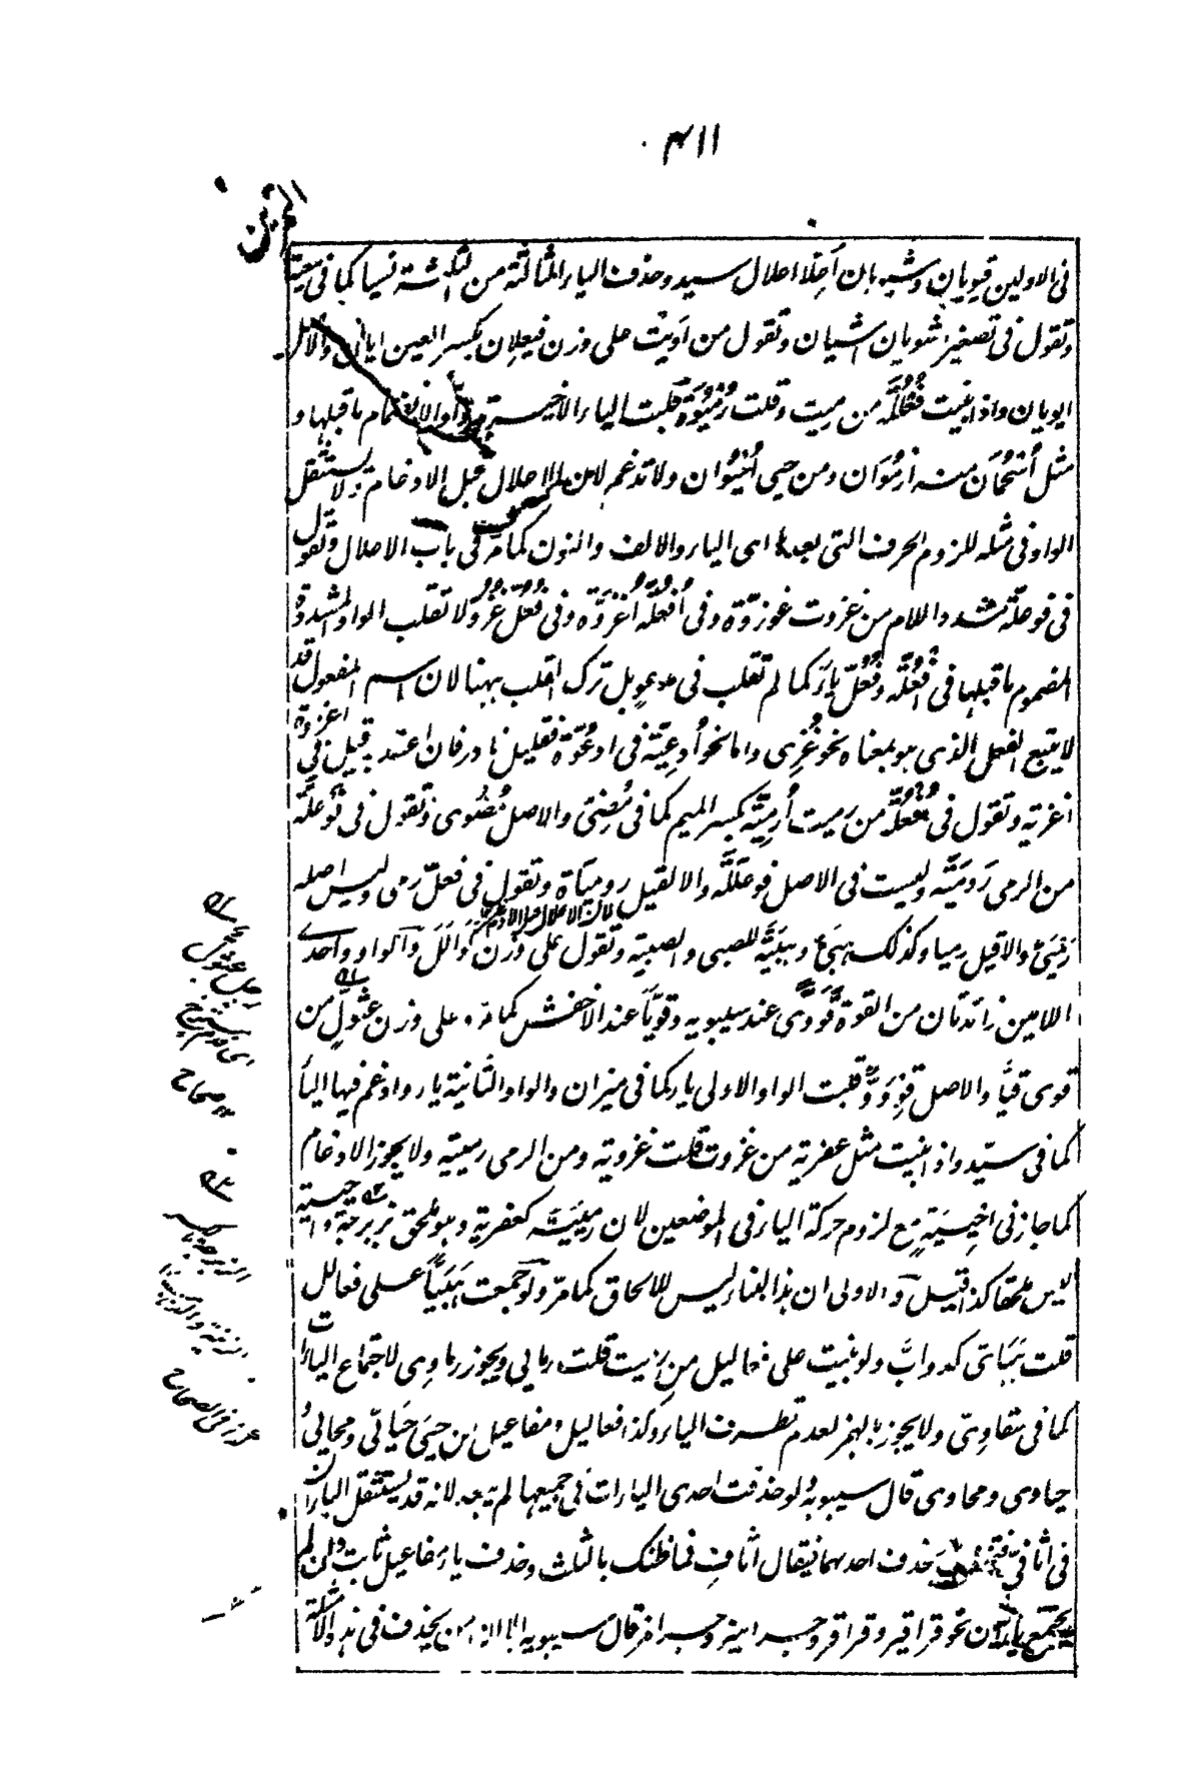 ٤١١
التمرين
فى الاولين قيويان وشيويان أعلّا اعلال سيد وحذف الياء الثالثة من الثلثة نسيا كما فى معية
وتقول فى تصغير شويان اشيان وتقول من اويت على وزن فيعلان بكسر العين ايّان والاصل
ايويان واذا بنيت فُعُلُلَّة من رميت وقلت رُمُيُوّة قلبت الياء الاخيرة واوا لانضمام ما قبلها و
مثل أُسْحُمَان منه ارمُوَان ومن حيى أُحْيُوَان ولا تدغم لان الاعلال قبل الادغام ولا يستثقل
الواو فى مثله للزوم الحرف التى بعدها اى الياء والالف والنون كما مرّ فى باب الاعلال وتقول
فى فوعلّة مشدد اللام من غزوت غوزوّة وفى أُفْعُلّة أُغزُوّة وفى فُعُلّ غُزُوّ ولا تقلب الواو المشددة
المضموم ما قبلها فى أُفْعُلّة وفُعُلّ ياء كما لم تقلب فى مدعو بل ترك القلب ههنا لان اسم المفعول قد
لا يتبع الفعل الذى هو بمعناه نحو غُزِى واما نحو أُدعِيّة فى ادعُوّة فقليل نادر فان اعتد به قيل فى اغزوة
اغزية وتقول فى أُفْعُلّة من رميت أُرمِيّة بكسر الميم كما فى مُضِىّ والاصل مُضُوى وتقول فى فوعلّة
من الرمى رَومَيَّة وليست فى الاصل فوعَلَلَة والا لقيل رومياة وتقول فى فعلّ رمى وليس اصله
رَمْيَىٌ والا قيل رميا وكذلك هبَىّ وهبيّة للصبى والصبية وتقول على وزن كَوَالَلَ والواو واحدى
لان الاعلال قبل الادغام
اللامين زائدتان من القوة قَوَوّى عند سيبويه وقَوَيّا عند الاخفش كما مرّ وعلى وزن عِثْوَلٍّ من
قوى قيّا والاصل قِوْوَوّ قلبت الواو الاولى ياء كما فى ميزان والواو الثانية ياء وادغم فيها الياء
كما فى سيّد واذا بنيت مثل عفرية من غزوت قلت غزوية ومن الرمى رمييه ولا يجوز الادغام
كما جاز فى احيية مع لزوم حركة الياء فى الموضعين لان رميية كعفرية وهو ملحق بزبرجة واحيية
ليس ملحقا كذا قيل والاولى ان هذا البناء ليس للالحاق كما مرّ ولو جمعت هَبَيّاً على فعالل
قلت هَبَاىّ كدوابّ ولو بنيت على فعاليل من رميت قلت رمايى ويجوز رماوى لاجتماع الياءات
كما فى سقاوىّ ولا يجوز بالهمز لعدم تطرف الياء وكذا فعاليل ومفاعيل من حيى حَيَائى ومحايى و
حياوى ومحاوى قال سيبويه ولو حذفت احدى الياءات فى جميعها لم يبعد لانه قد يستثقل الياءان
فى اثافىّ فتخفف بحذف احدهما فيقال اثافٍ فما ظنك بالثلث وحذف ياء مفاعيل ثابت وان لم
يجتمع ياءان نحو قراقير وقراقر وجراميز وجرامز قال سيبويه الا ان من يحذف فى هذه الامثلة
صحاح
الصحاح